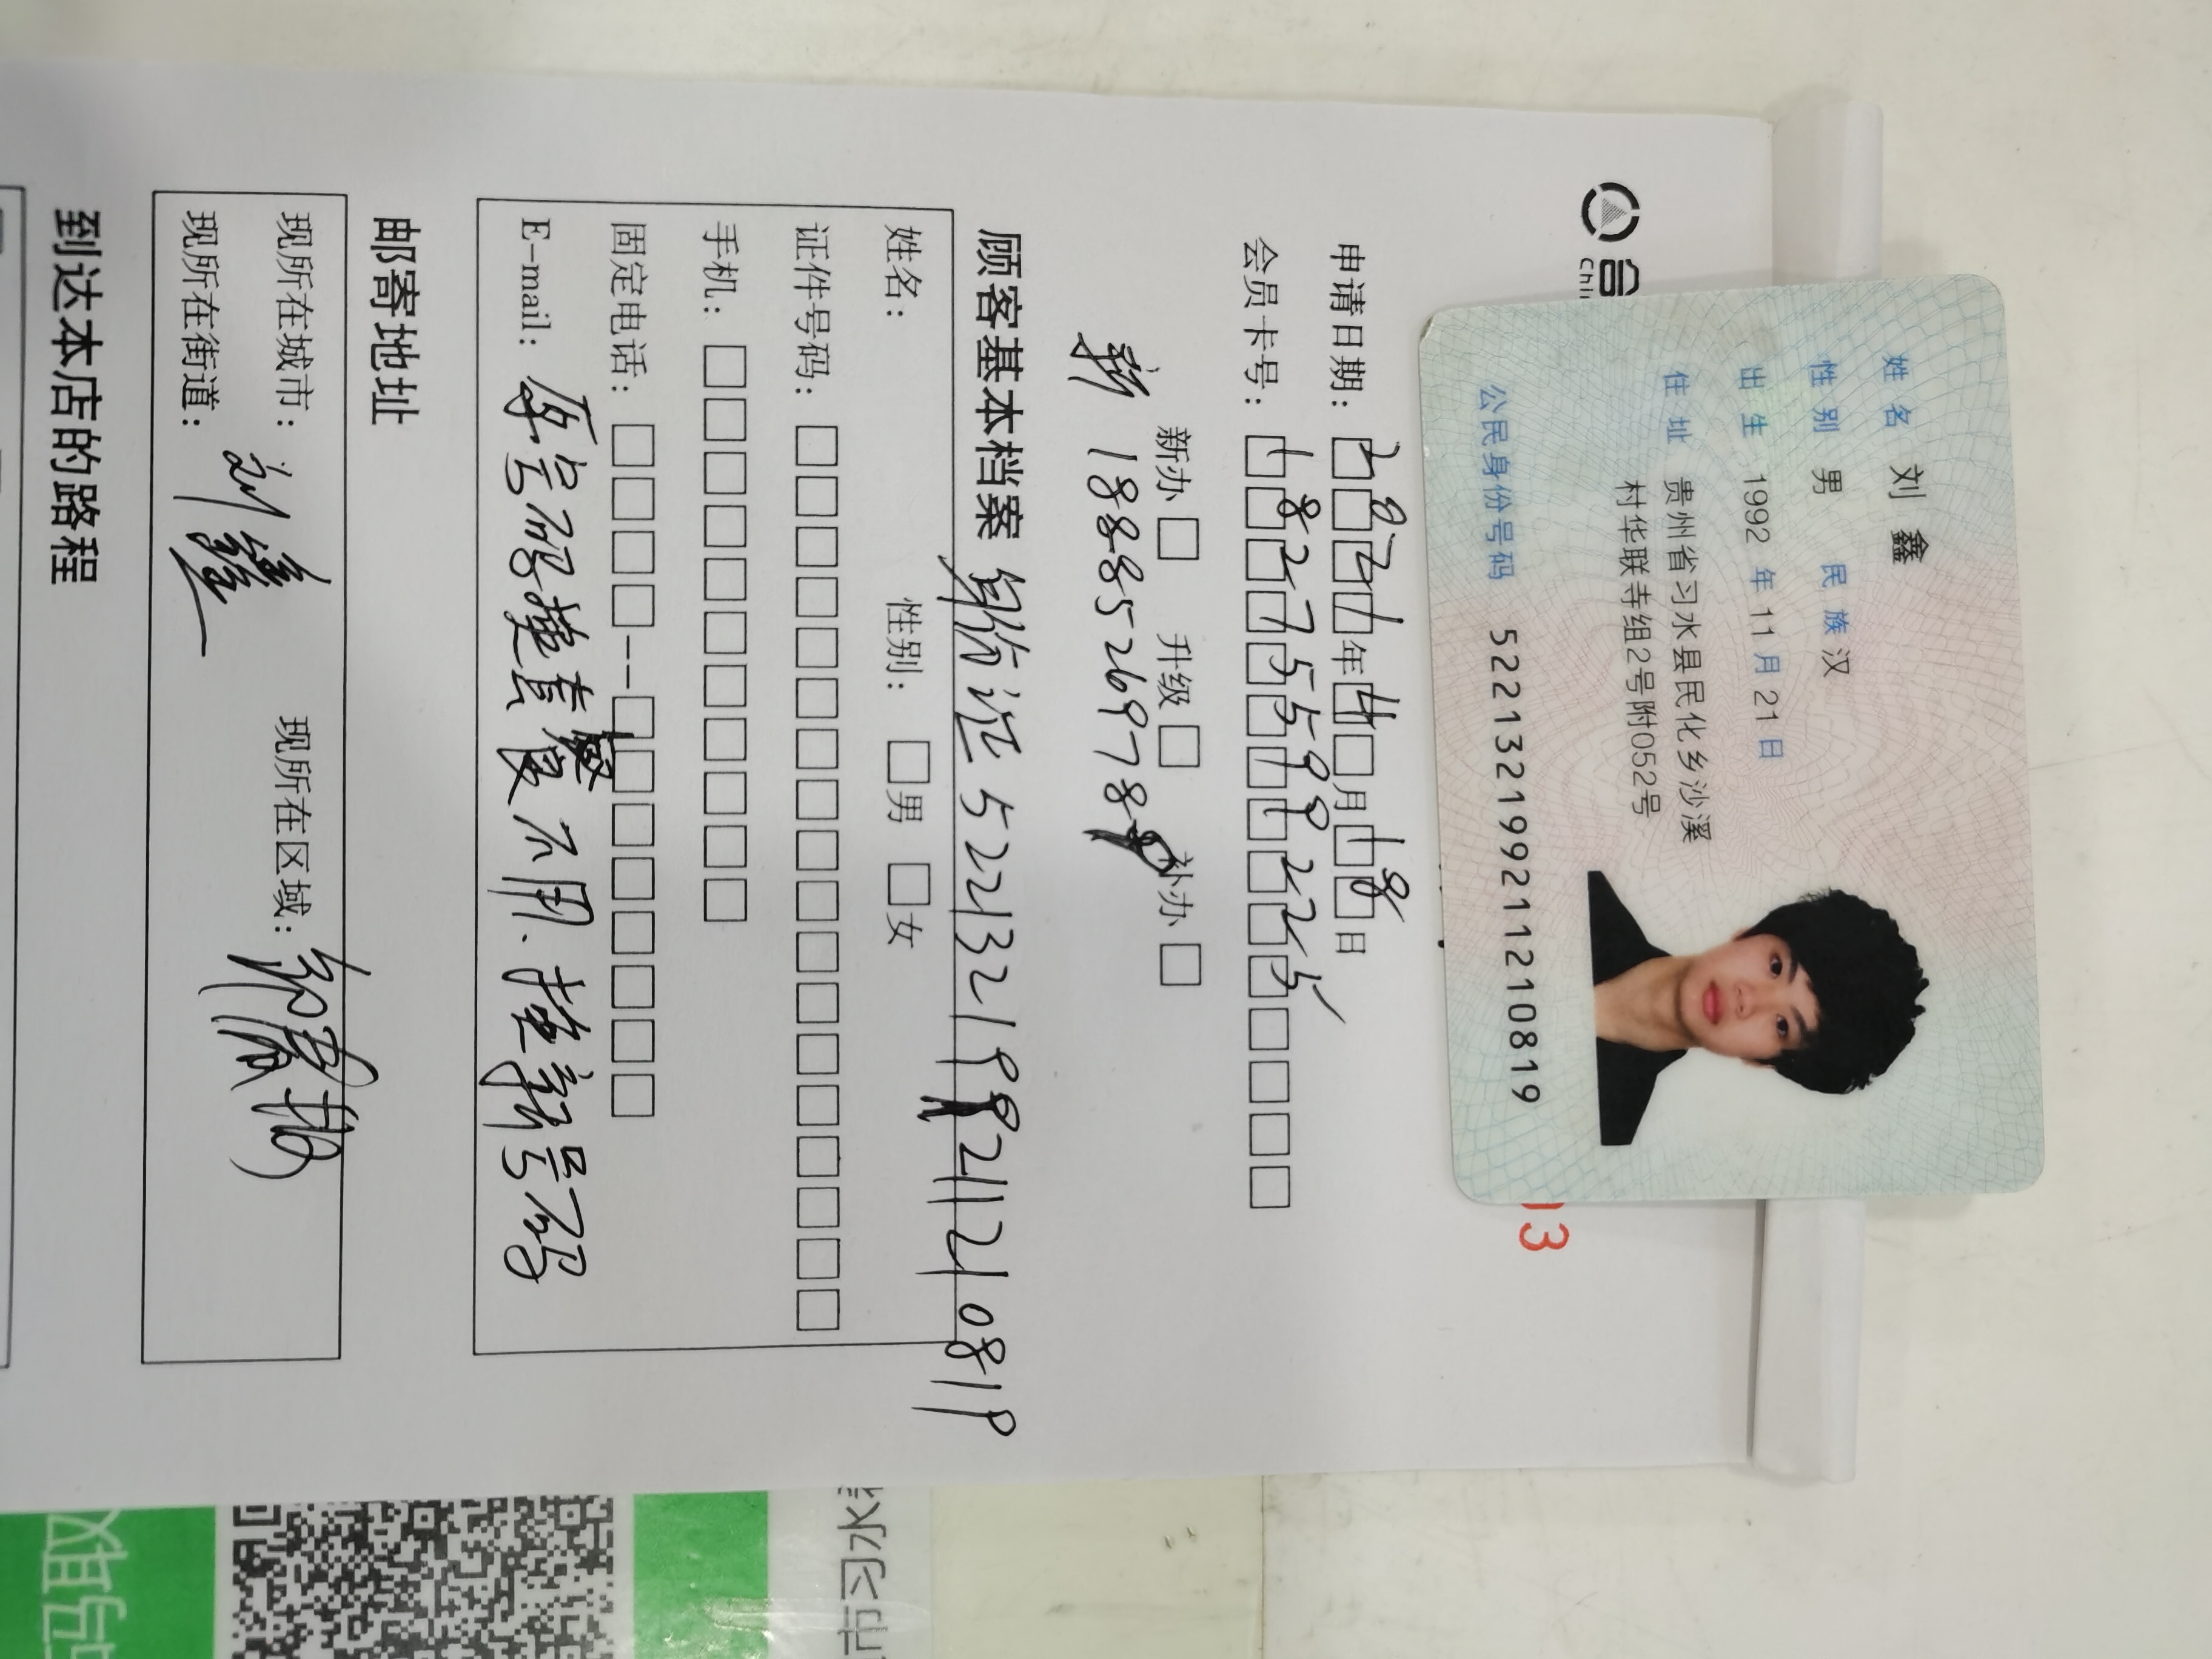 姓名 刘鑫
性别 男 民族 汉
出生 1992 年 11 月 21 日
住址 贵州省习水县民化乡沙溪
村华联寺组2号附052号
公民身份号码 522132199211210819
03
申请日期: 2021年4月18日
会员卡号: 18275599225
新办 □ 升级 □ 补办 □
新
顾客基本档案 身份证522132199211210819
姓名: 性别: □男 □女
证件号码:
手机:
固定电话: --
E-mail: 原号码 不用、 新号码
邮寄地址
现所在城市: 现所在区域:
现所在街道: 刘鑫
到达本店的路程
市习水